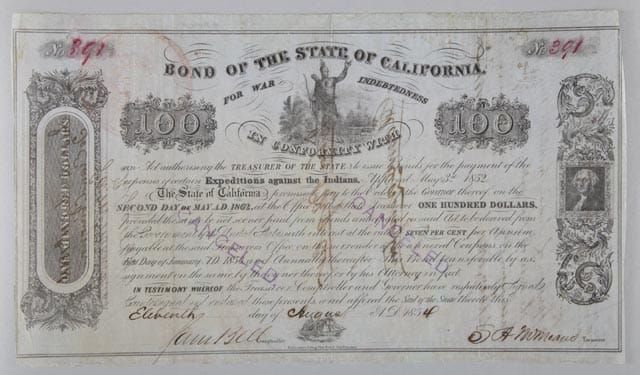 No 391 No 391
BOND OF THE STATE OF CALIFORNIA.
FOR WAR INDEBTEDNESS
100 100
IN CONFORMITY WITH
ONE HUNDRED DOLLARS
an Act authorising the TREASURER OF THE STATE to issue Bonds for the payment of the
Expenses of certain Expeditions against the Indians, Approved May 3d 1852
The State of California promises to pay to the Order of the Governor thereof on the
SECOND DAY OF MAY A.D. 1862, at the Office of the ONE HUNDRED DOLLARS,
Provided the same be not sooner paid from funds to be derived from
the Government of the United States with interest at the rate of SEVEN PER CENT per Annum
payable at the said Office on the surrender of the annexed Coupons on the
first Day of January AD 185 and Annually thereafter This Bond is transferable by as-
signment on the same by the or by his Attorney in fact
CANCELED CANCELED
IN TESTIMONY WHEREOF the Treasurer, Comptroller and Governor have respectively Signed
these presents and affixed the Seal of the State thereto this
Eleventh day of August A.D. 1854
Sam Bell Comptroller S A McMeans Treasurer